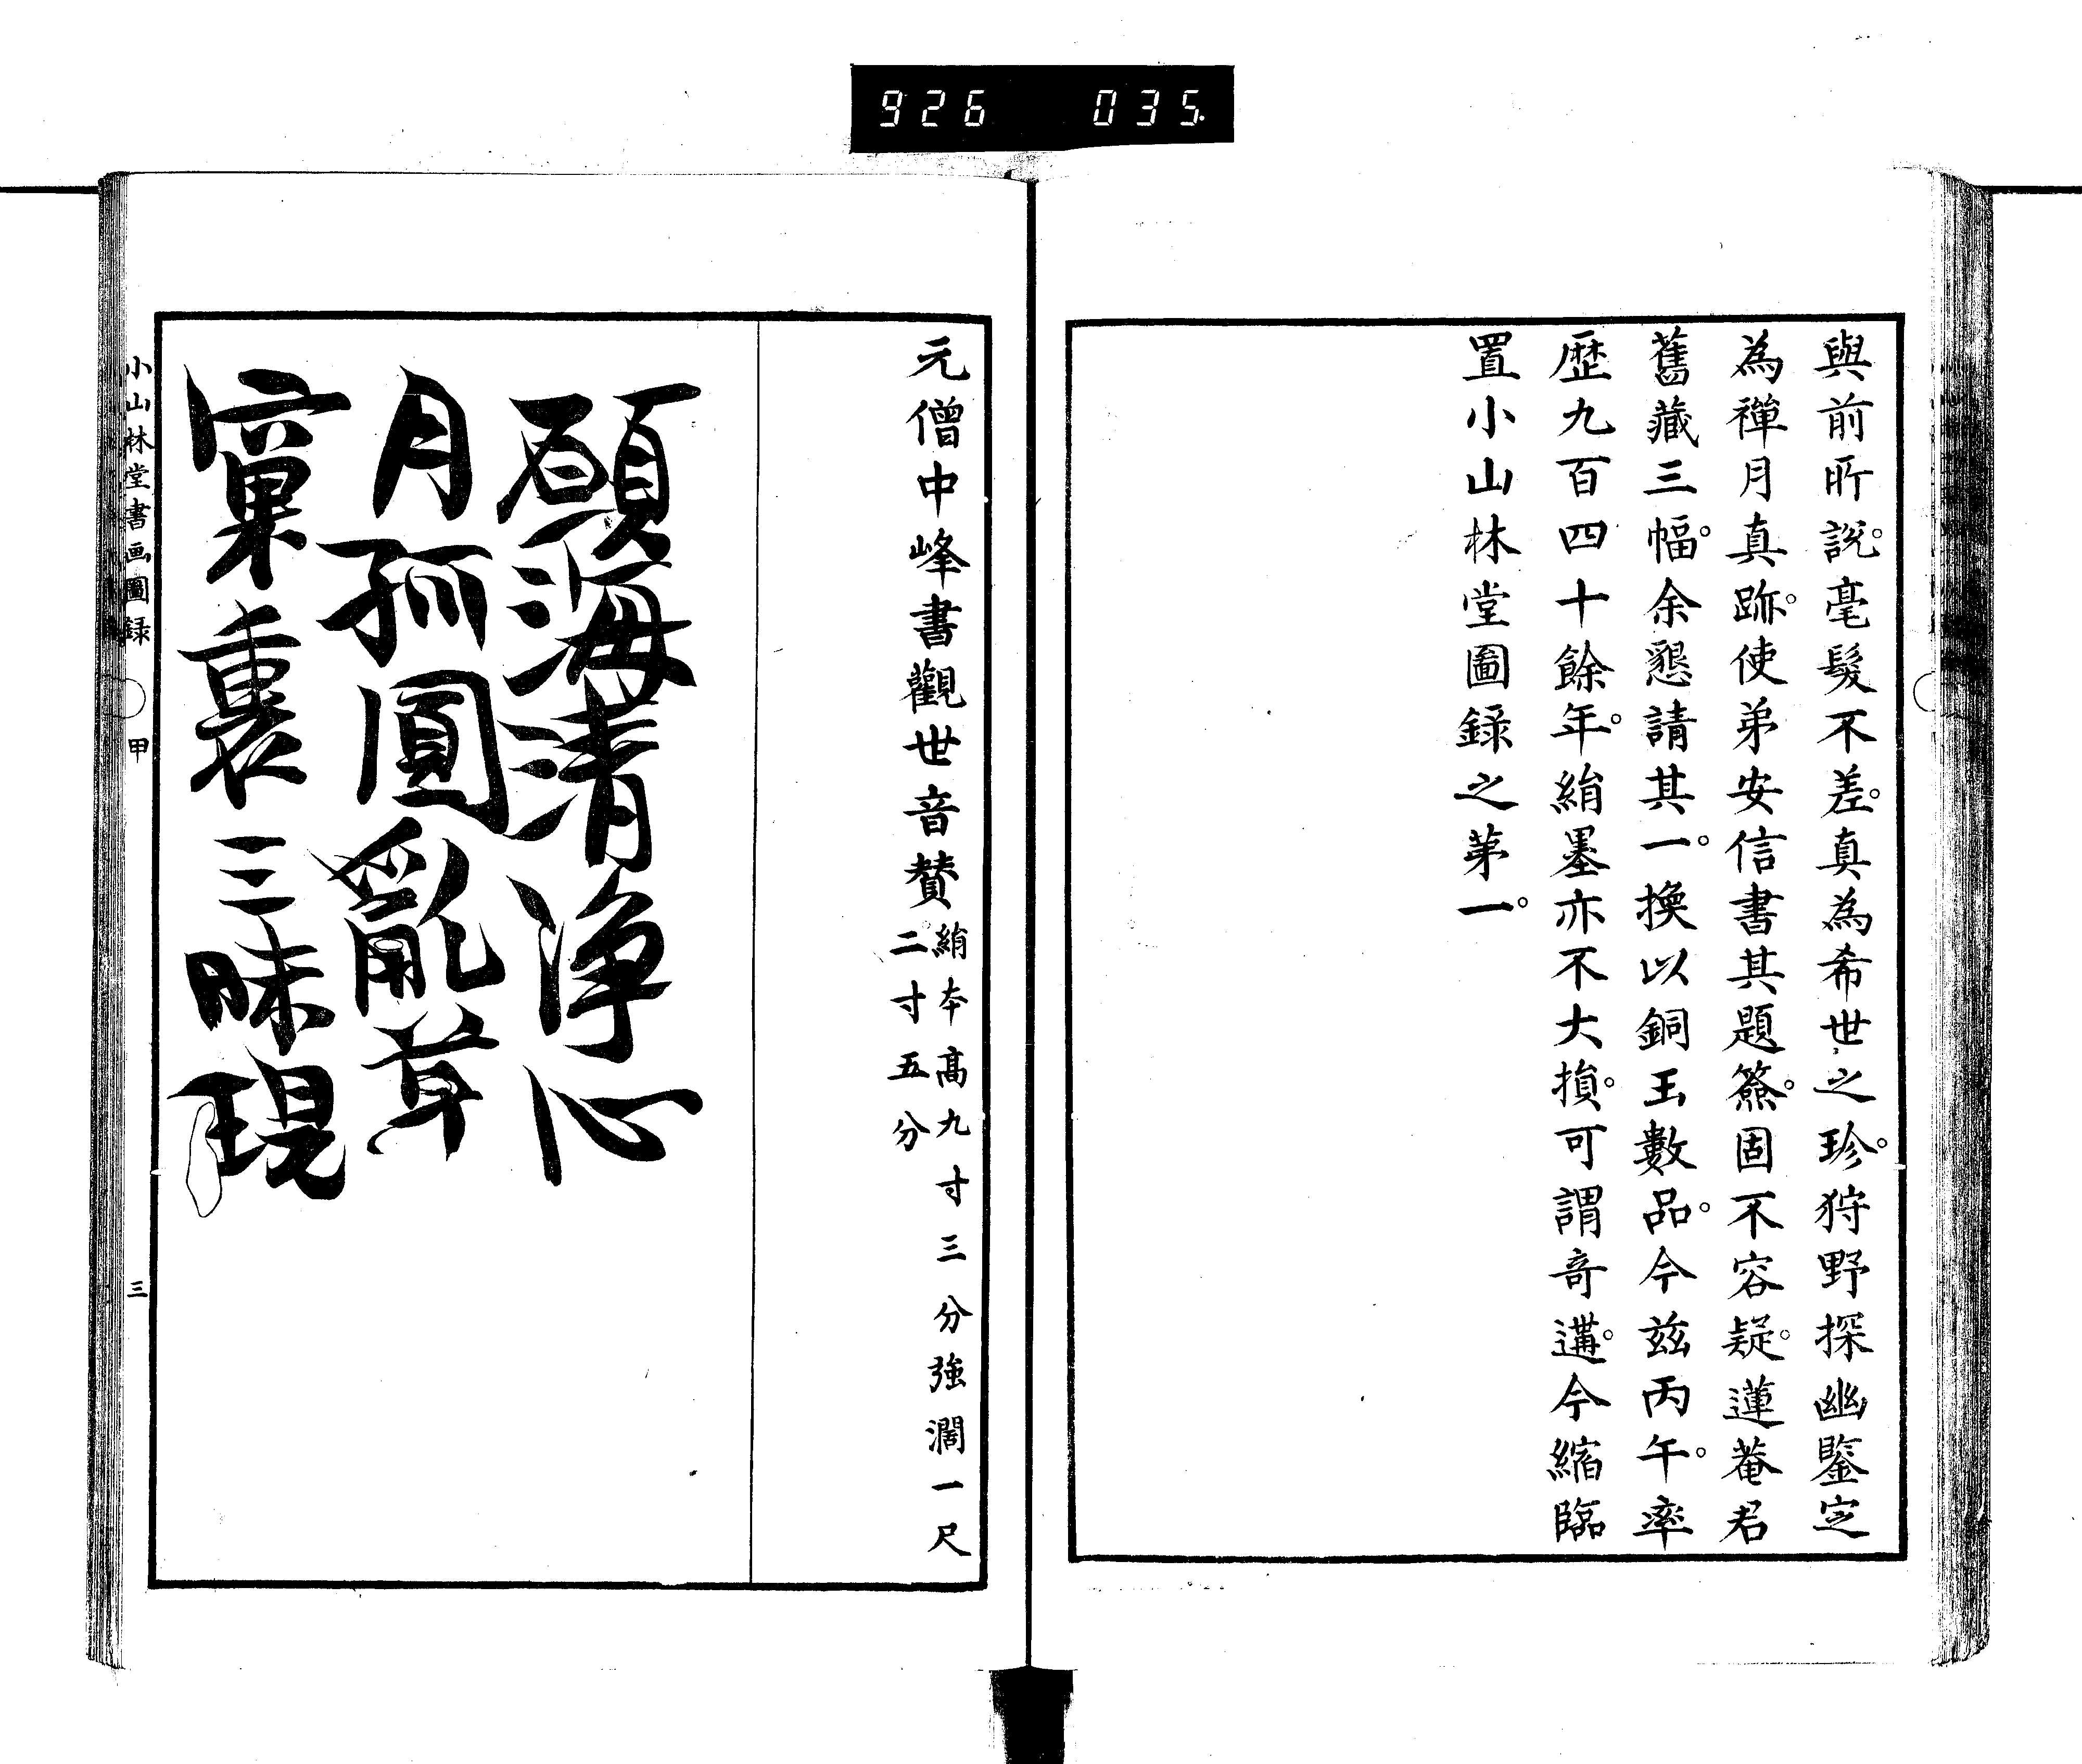 926 035.
與前所説。毫髮不差。真為希世之珍。狩野探幽鑒定
為禪月真跡。使弟安信書其題簽。固不容疑。蓮菴君
舊藏三幅。余懇請其一。換以銅玉數品。今茲丙午。率
歷九百四十餘年。絹墨亦不大損。可謂奇遘。今縮臨
置小山林堂圖録之第一。
元僧中峰書觀世音賛。絹本高九寸三分強濶一尺
二寸五分
願海清淨心
月孤圓亂草
窠裏三昧現
小山林堂書画圖録 甲 三